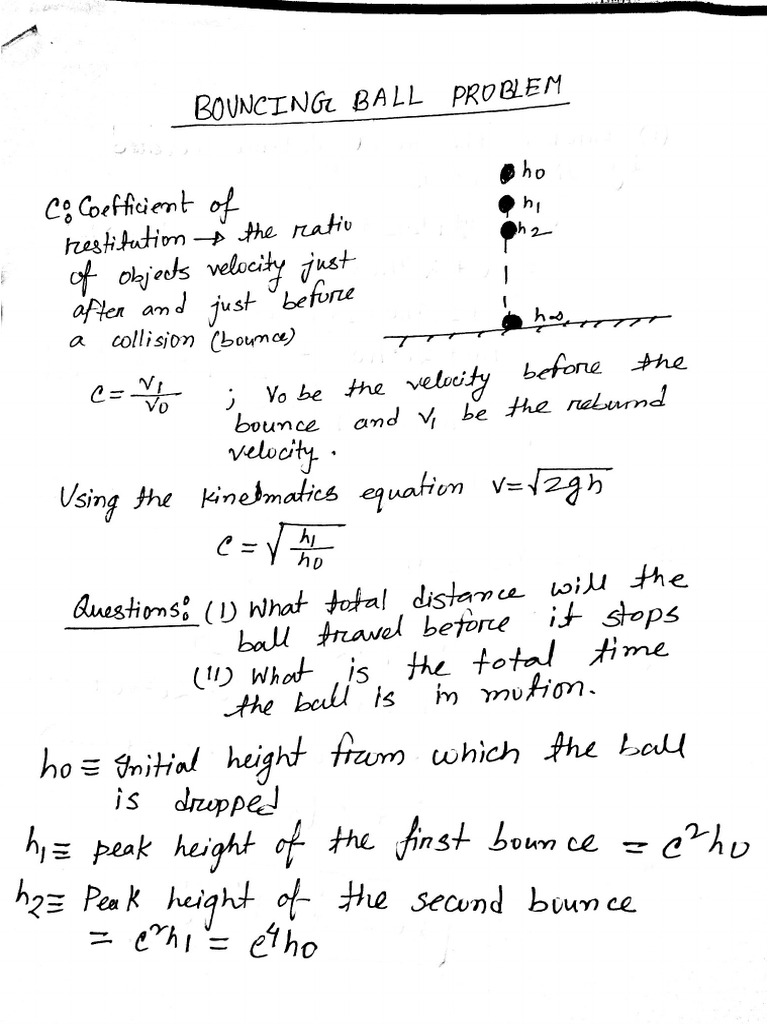 BOUNCING BALL PROBLEM
h0
h1
h2
h∞
C: Coefficient of
restitution → the ratio
of objects velocity just
after and just before
a collision (bounce)
C = v1/v0 ; v0 be the velocity before the
bounce and v1 be the rebound
velocity.
Using the kinematics equation v=√2gh
C = √h1/h0
Questions: (I) What total distance will the
ball travel before it stops
(II) What is the total time
the ball is in motion.
h0 ≡ Initial height from which the ball
is dropped
h1 ≡ peak height of the first bounce = c²h0
h2 ≡ Peak height of the second bounce
= c²h1 = c⁴h0